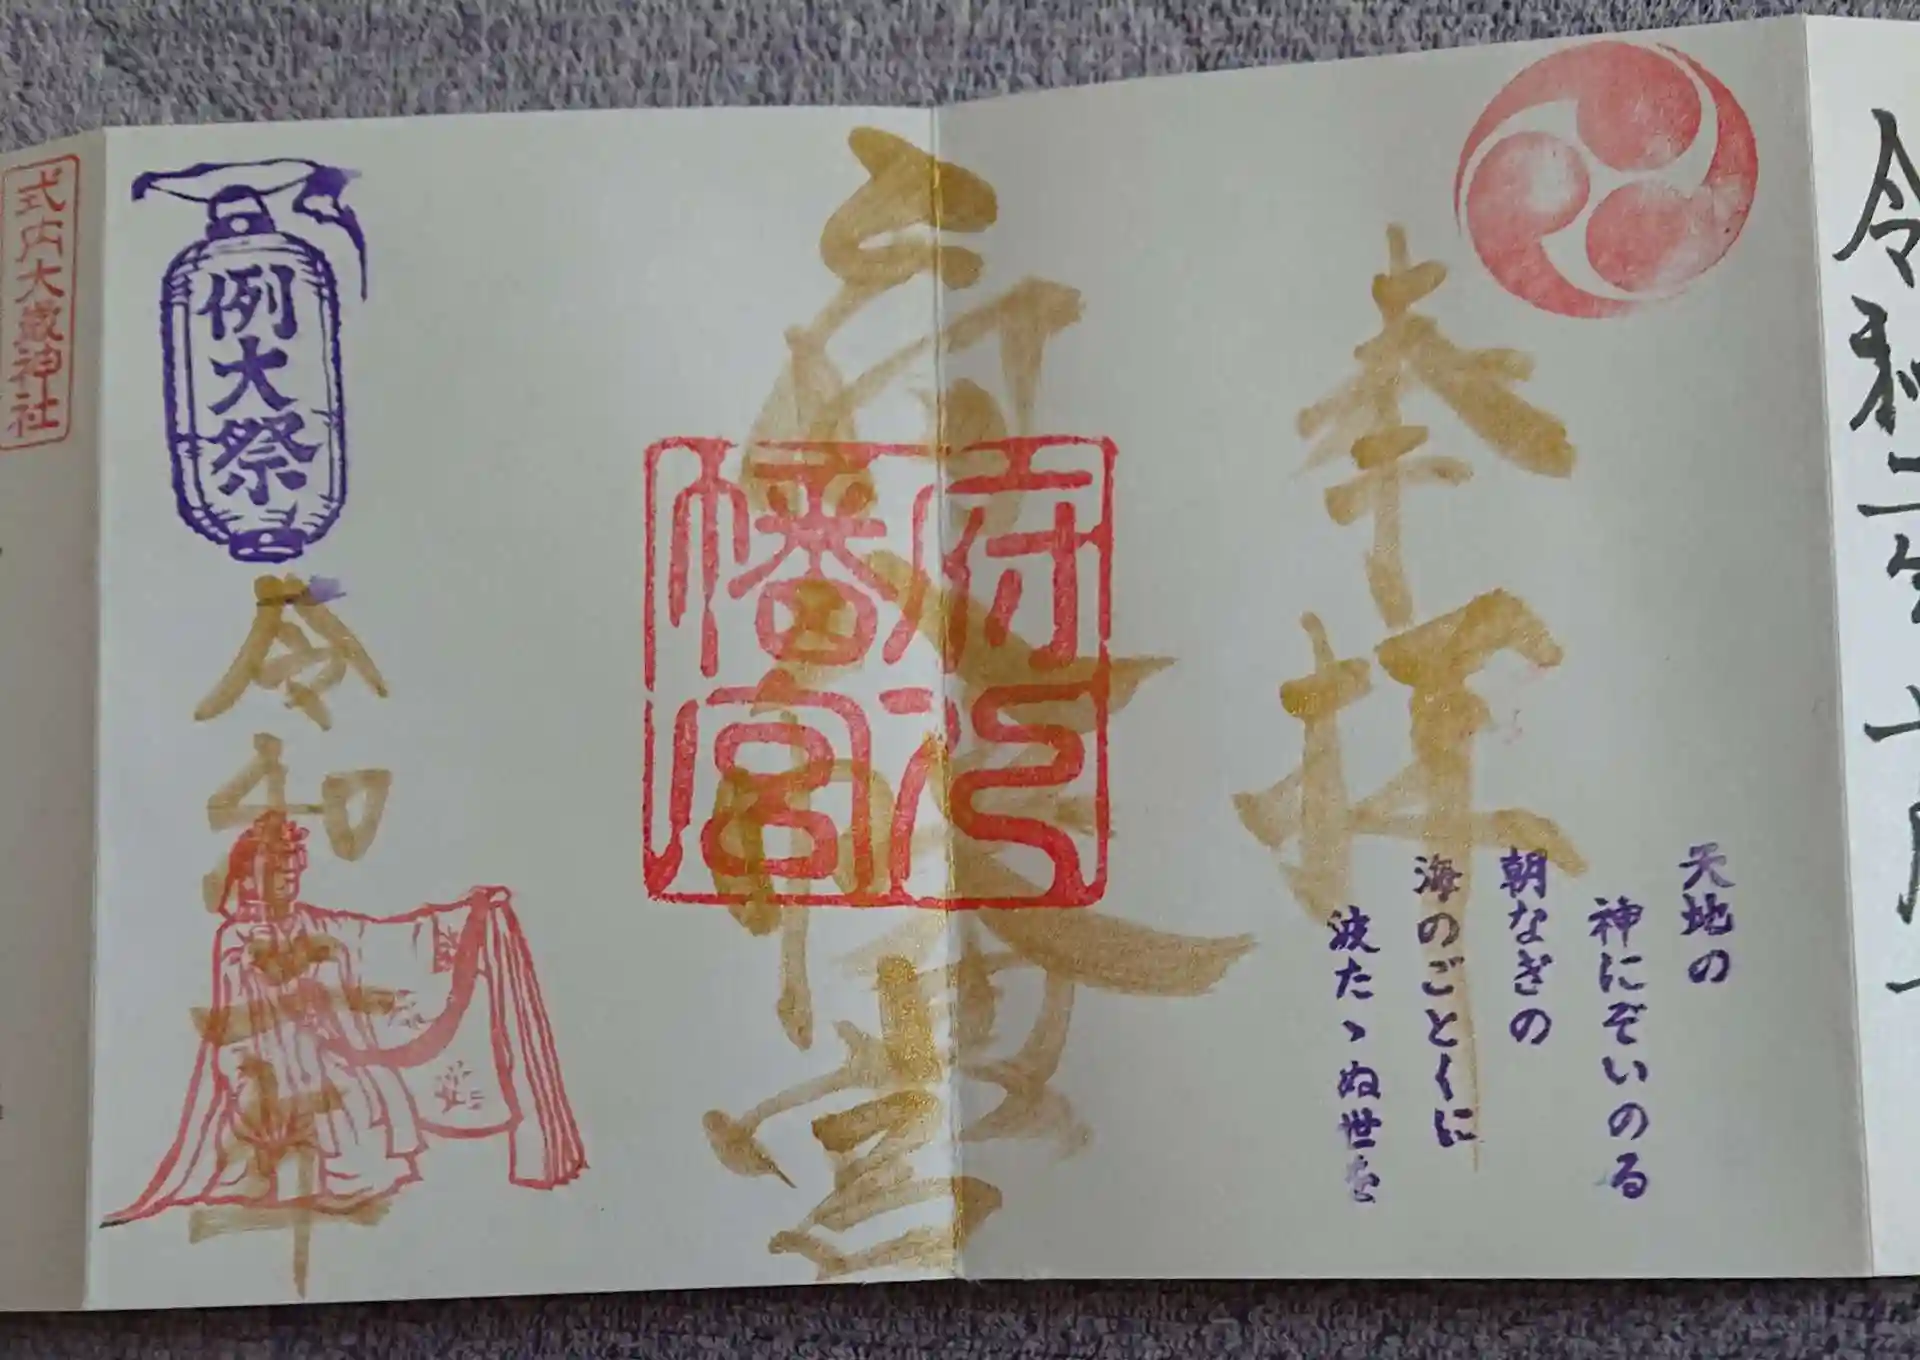 令和
奉拝
天地の
神にぞいのる
朝なぎの
海のごとくに
波たゝぬ世を
府八幡宮
府八
幡宮
例大祭
令和
式内大歳神社